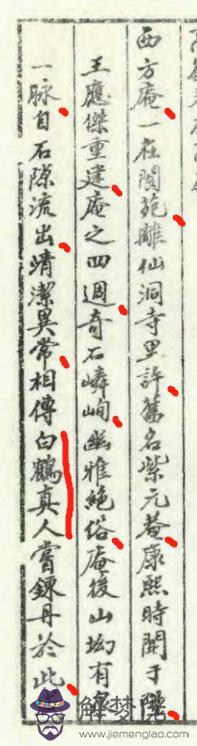 西方庵一在閬苑離仙洞寺里許舊名紫元菴康熙時開于
王應傑重建庵之四週奇石嶙峋幽雅絕俗庵後山坳有
一脉自石隙流出靖潔異常相傳白鶴真人嘗鍊丹於此
解梦